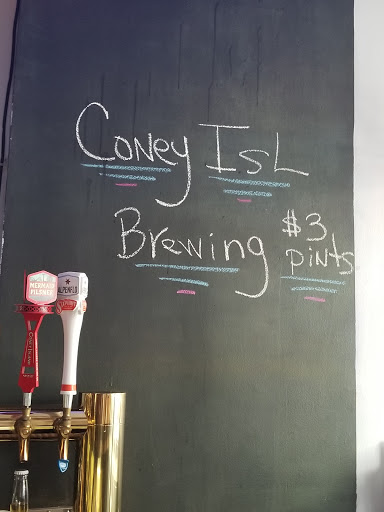 Coney IsL
Brewing $3 pints
MERMAID
PILSNER